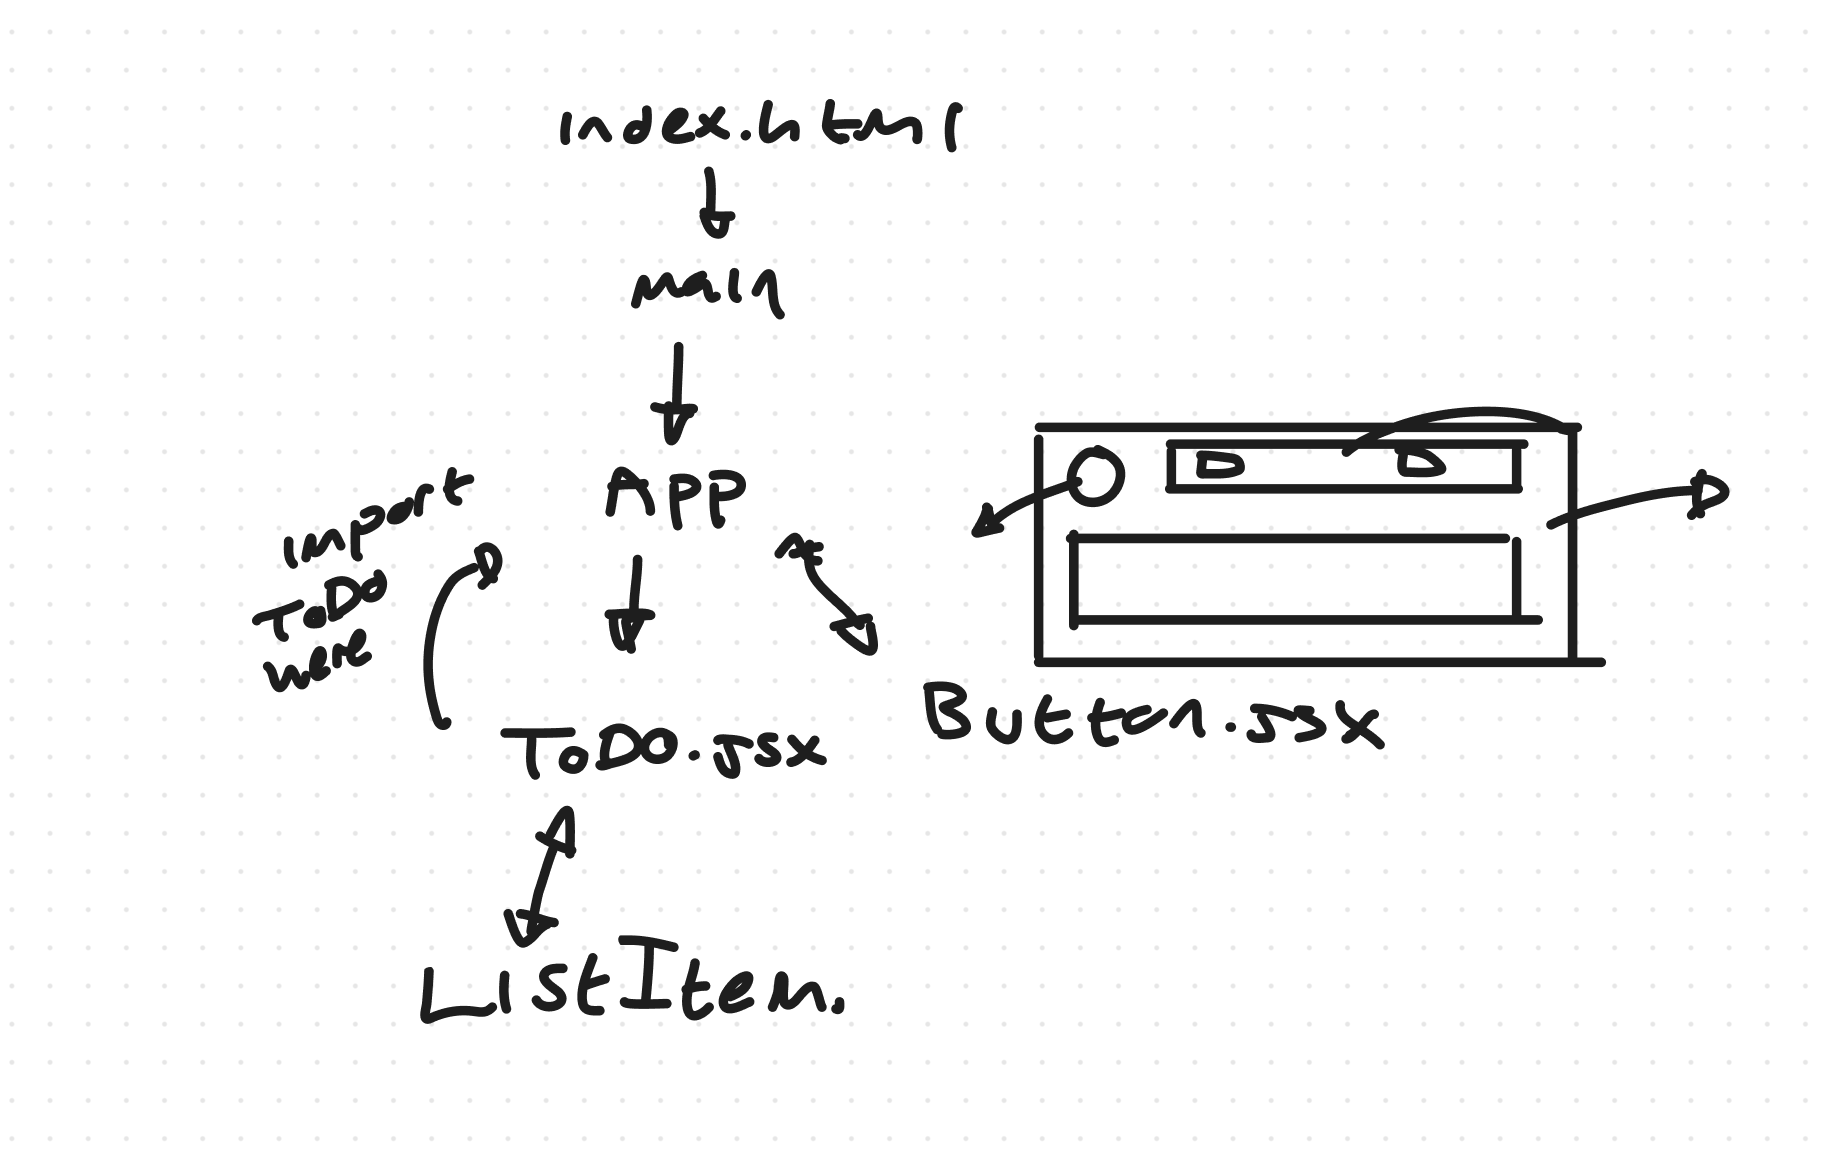 index.html
main
App
import
ToDo
were
ToDo.jsx
Button.jsx
ListItem.